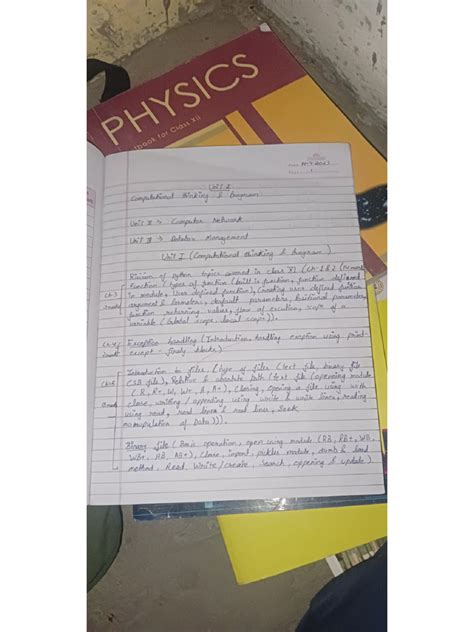 PHYSICS
Textbook for Class XII
Unit I
Computational thinking & Program
Unit II → Computer Network
Unit III → Database Management
Unit I (Computational thinking & Program)
Revision of python topics covered in class XI (Ch-1 & 2
Function (types of function (built is function, function defined
in module, User defined function), Creating user defined function
argument & Parameters, default parameters, Positional parameters
function returning values, flow of excution, scope of a
variable (Global scope, local scope)).
Exception handling (Introduction, handling exception using
except - finally blocks)
Introduction to files, (type of files (text file, binary file
CSB file), Relative & absolute path (text file (openning module
(R, R+, W, W+, A, A+), Closing, opening a file using with
close, writing/appending using write & write lines, reading
using read, read lines & read lines, Seek
manupulation of Data))).
Binary file (Basic operation, open using module (RB, RB+, WB,
WB+, AB, AB+), Close, import, pickles module, dumb & load
method, Read, Write/create, Search, appening & update)